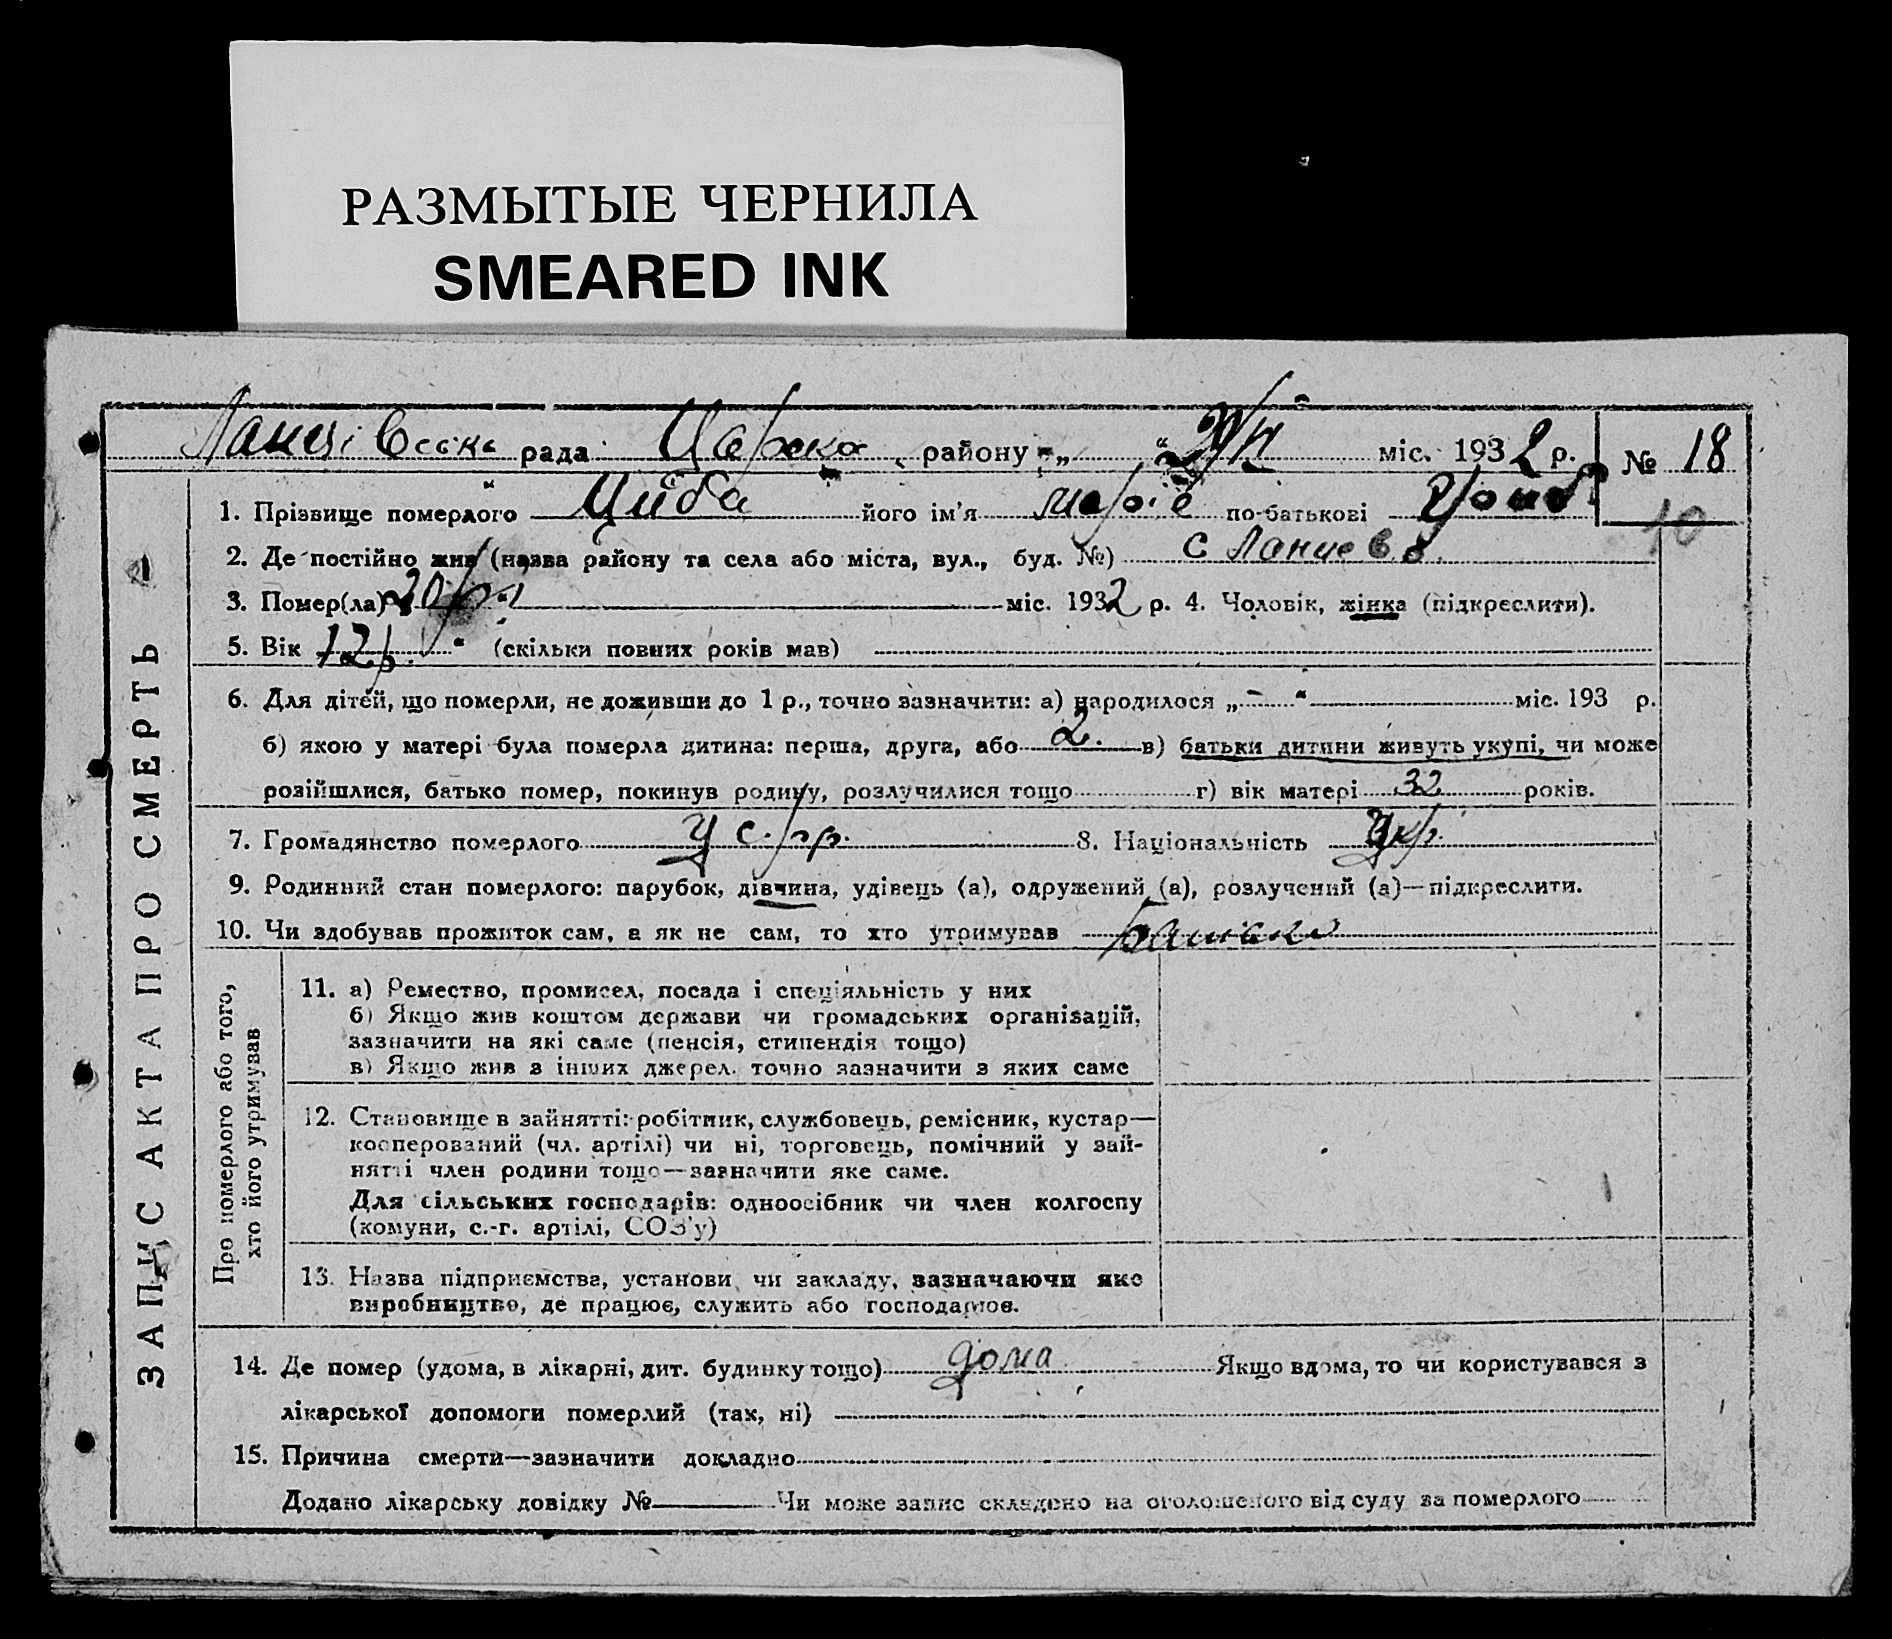 РАЗМЫТЫЕ ЧЕРНИЛА
SMEARED INK
рада району „ “ міс. 1932 р. № 18
10
1. Прізвище померлого Циба його ім'я по-батькові
2. Де постійно жив (назва району та села або міста, вул., буд. №) с
3. Помер(ла) міс. 1932 р. 4. Чоловік, жінка (підкреслити).
5. Вік 12 р. “ (скільки повних років мав)
6. Для дітей, що померли, не доживши до 1 р., точно зазначити: а) народилося „ “ міс. 193 р.
б) якою у матері була померла дитина: перша, друга, або 2. в) батьки дитини живуть укупі, чи може
розійшлися, батько помер, покинув родину, розлучилися тощо г) вік матері 32 років.
7. Громадянство померлого 8. Національність Укр.
9. Родинний стан померлого: парубок, дівчина, удівець (а), одружений (а), розлучений (а)—підкреслити.
10. Чи здобував прожиток сам, а як не сам, то хто утримував
ЗАПИС АКТА ПРО СМЕРТЬ
Про померлого або того,
хто його утримував
11. а) Ремество, промисел, посада і спеціяльність у них
б) Якщо жив коштом держави чи громадських організацій,
зазначити на які саме (пенсія, стипендія тощо)
в) Якщо жив з інших джерел. точно зазначити з яких саме
12. Становище в зайнятті: робітник, службовець, ремісник, кустар—
кооперований (чл. артілі) чи ні, торговець, помічний у зай-
нятті член родини тощо—зазначити яке саме.
Для сільських господарів: одноосібник чи член колгоспу
(комуни, с.-г. артілі, СОЗ'у)
13. Назва підприємства, установи чи закладу, зазначаючи яке
виробництво, де працює, служить або господарює.
14. Де помер (удома, в лікарні, дит. будинку тощо) дома Якщо вдома, то чи користувався з
лікарської допомоги померлий (так, ні)
15. Причина смерти—зазначити докладно
Додано лікарську довідку № Чи може запис складено на оголошеного від суду за померлого